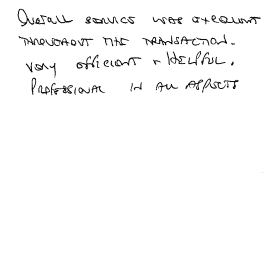 Overall service was excellent
THROUGHOUT THE TRANSACTION.
very efficient + HELPFUL.
PROFESSIONAL IN ALL ASPECTS